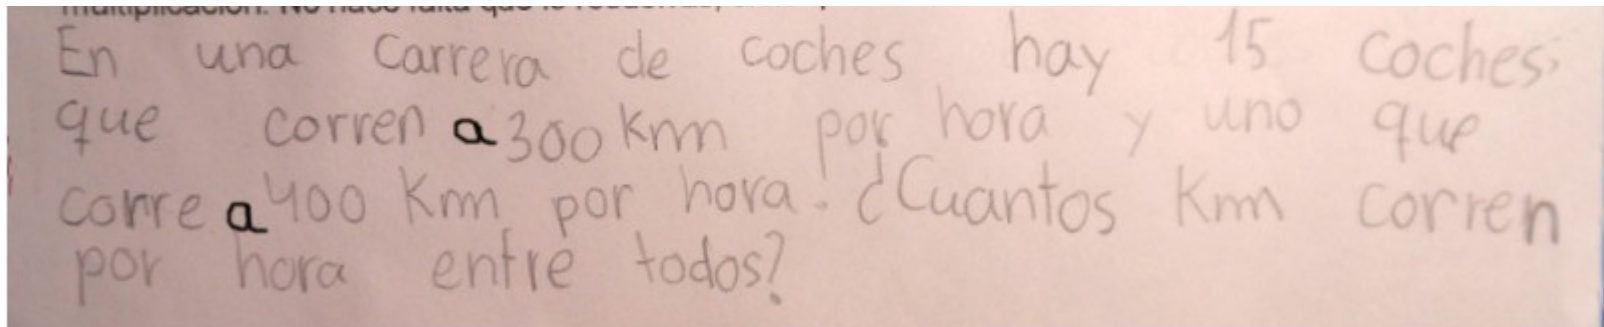 En una carrera de coches hay 15 coches
que corren a 300 Km por hora y uno que
corre a 400 Km por hora. ¿Cuantos Km corren
por hora entre todos?